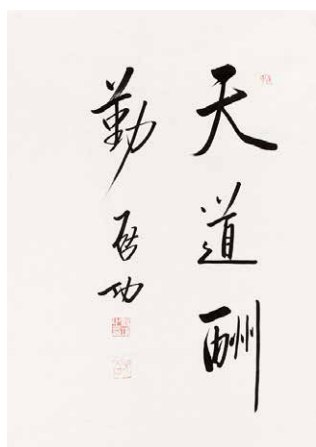 天道酬
勤
启功